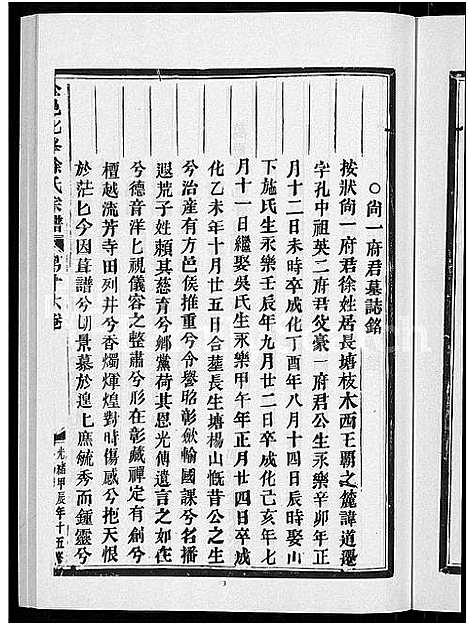 ○尙一府君墓誌銘
按狀尙一府君徐姓居長塘枝木西王覇之麓諱道遷
字孔中祖英二府君父豪一府君公生永樂辛卯年正
月十二日未時卒成化丁酉年八月十四日辰時娶山
下施氏生永樂壬辰年九月廿二日卒成化己亥年七
月十一日繼娶吳氏生永樂甲午年正月廿四日卒成
化乙未年十月廿五日合塟長生塘楊山慨昔公之生
兮治產有方邑侯推重兮令譽昭彰歛輸國課兮名播
遐荒子姓賴其慈育兮鄉黨荷其恩光傳遺言之如在
兮德音洋匕視儀容之整肅兮形在彰藏禪定有創兮
檀越流芳寺田列井兮香燭煇煌對時傷感兮抱天恨
於茫匕今因葺譜兮切景墓於遑匕庶毓秀而鍾靈兮
北 徐氏宗譜 第十六卷
光緒甲辰年十五修